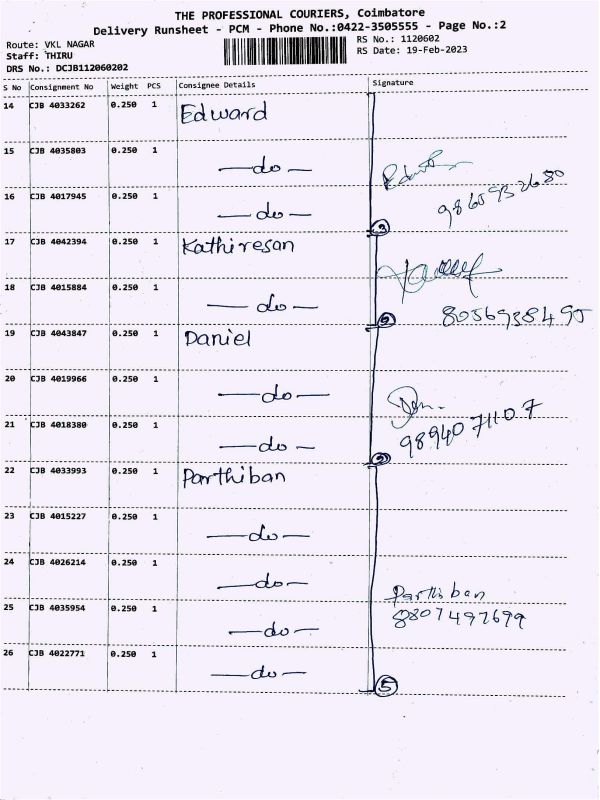 THE PROFESSIONAL COURIERS, Coimbatore
Delivery Runsheet - PCM - Phone No.:0422-3505555 - Page No.:2
Route: VKL NAGAR
RS No.: 1120602
Staff: THIRU
RS Date: 19-Feb-2023
DRS No.: DCJB112060202
S No Consignment No Weight PCS Consignee Details Signature
14 CJB 4033262 0.250 1 Edward
15 CJB 4035803 0.250 1 —do—
16 CJB 4017945 0.250 1 —do— 9865932680
3
17 CJB 4042394 0.250 1 Kathiresan
18 CJB 4015884 0.250 1 —do— 8056938495
19 CJB 4043847 0.250 1 Daniel
20 CJB 4019966 0.250 1 —do—
21 CJB 4018380 0.250 1 —do— 9894071107
3
22 CJB 4033993 0.250 1 Parthiban
23 CJB 4015227 0.250 1 —do—
24 CJB 4026214 0.250 1 —do— Parthiban
25 CJB 4035954 0.250 1 —do— 8807497699
26 CJB 4022771 0.250 1 —do—
5